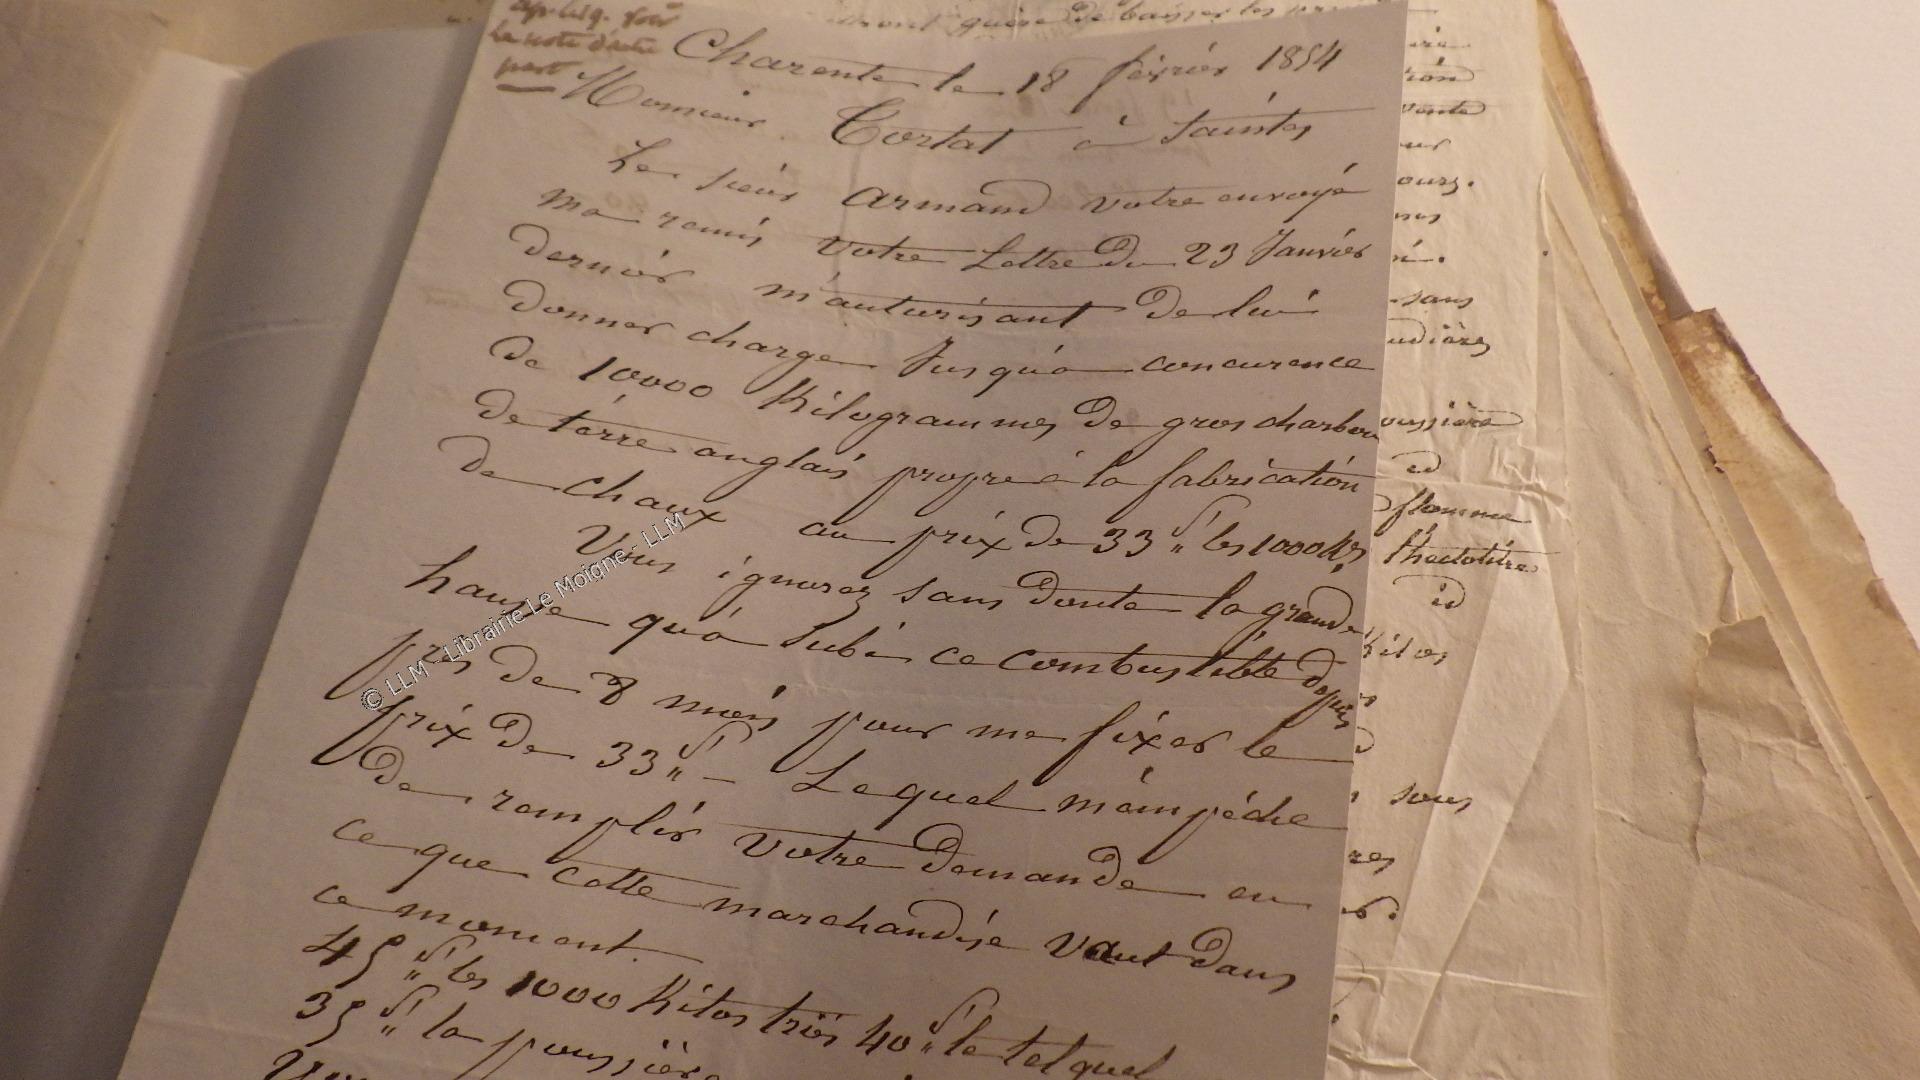 voir
la note d'autre
part
Charente le 18 février 1854
Monsieur Tortat à Saintes
Le sieur Armand votre envoyé
ma remis votre Lettre Du 23 Janvier
Dernier m'autorisant De lui
Donner charge Jusqu'à concurence
De 10000 Kilogrammes De gros charbon
De terre anglais propre à la fabrication
De chaux au prix De 33 f" les 1000 Ks
Vous ignorez sans Doute la grande
hausse qu'a Subi ce combustible Depuis
près De 8 mois pour me fixer le
prix De 33 f" – Lequel m'empéche
De remplir votre Demande en
ce que cette marchandise vaut Dans
ce moment.
45 f" les 1000 Kilos triés 40 f" le tel quel
35 f" la poussière
guère De baisser les
vente
sans
poussière
id
flamme
l'hectolitre
id
Kilos
sous
© LLM - Librairie Le Moigne - LLM